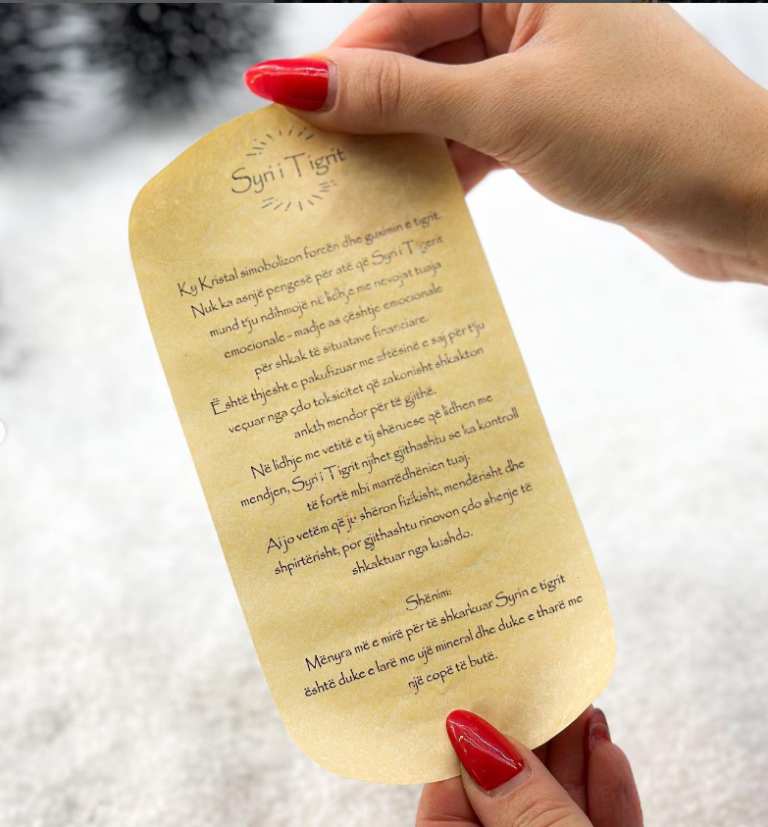 Syri i Tigrit
Ky Kristal simobolizon forcën dhe guximin e tigrit.
Nuk ka asnjë pengesë për atë që Syri i Tigerit
mund t'ju ndihmojë në lidhje me nevojat tuaja
emocionale - madje as çështje emocionale
për shkak të situatave financiare.
Është thjesht e pakufizuar me aftësinë e saj për t'ju
veçuar nga çdo toksicitet që zakonisht shkakton
ankth mendor për të gjithë.
Në lidhje me vetitë e tij shëruese që lidhen me
mendjen, Syri i Tigrit njihet gjithashtu se ka kontroll
të fortë mbi marrëdhënien tuaj.
Ai jo vetëm që ju shëron fizikisht, mendërisht dhe
shpirtërisht, por gjithashtu rinovon çdo shenje të
shkaktuar nga kushdo.
Shënim:
Mënyra më e mirë për të shkarkuar Syrin e tigrit
është duke e larë me ujë mineral dhe duke e tharë me
një copë të butë.